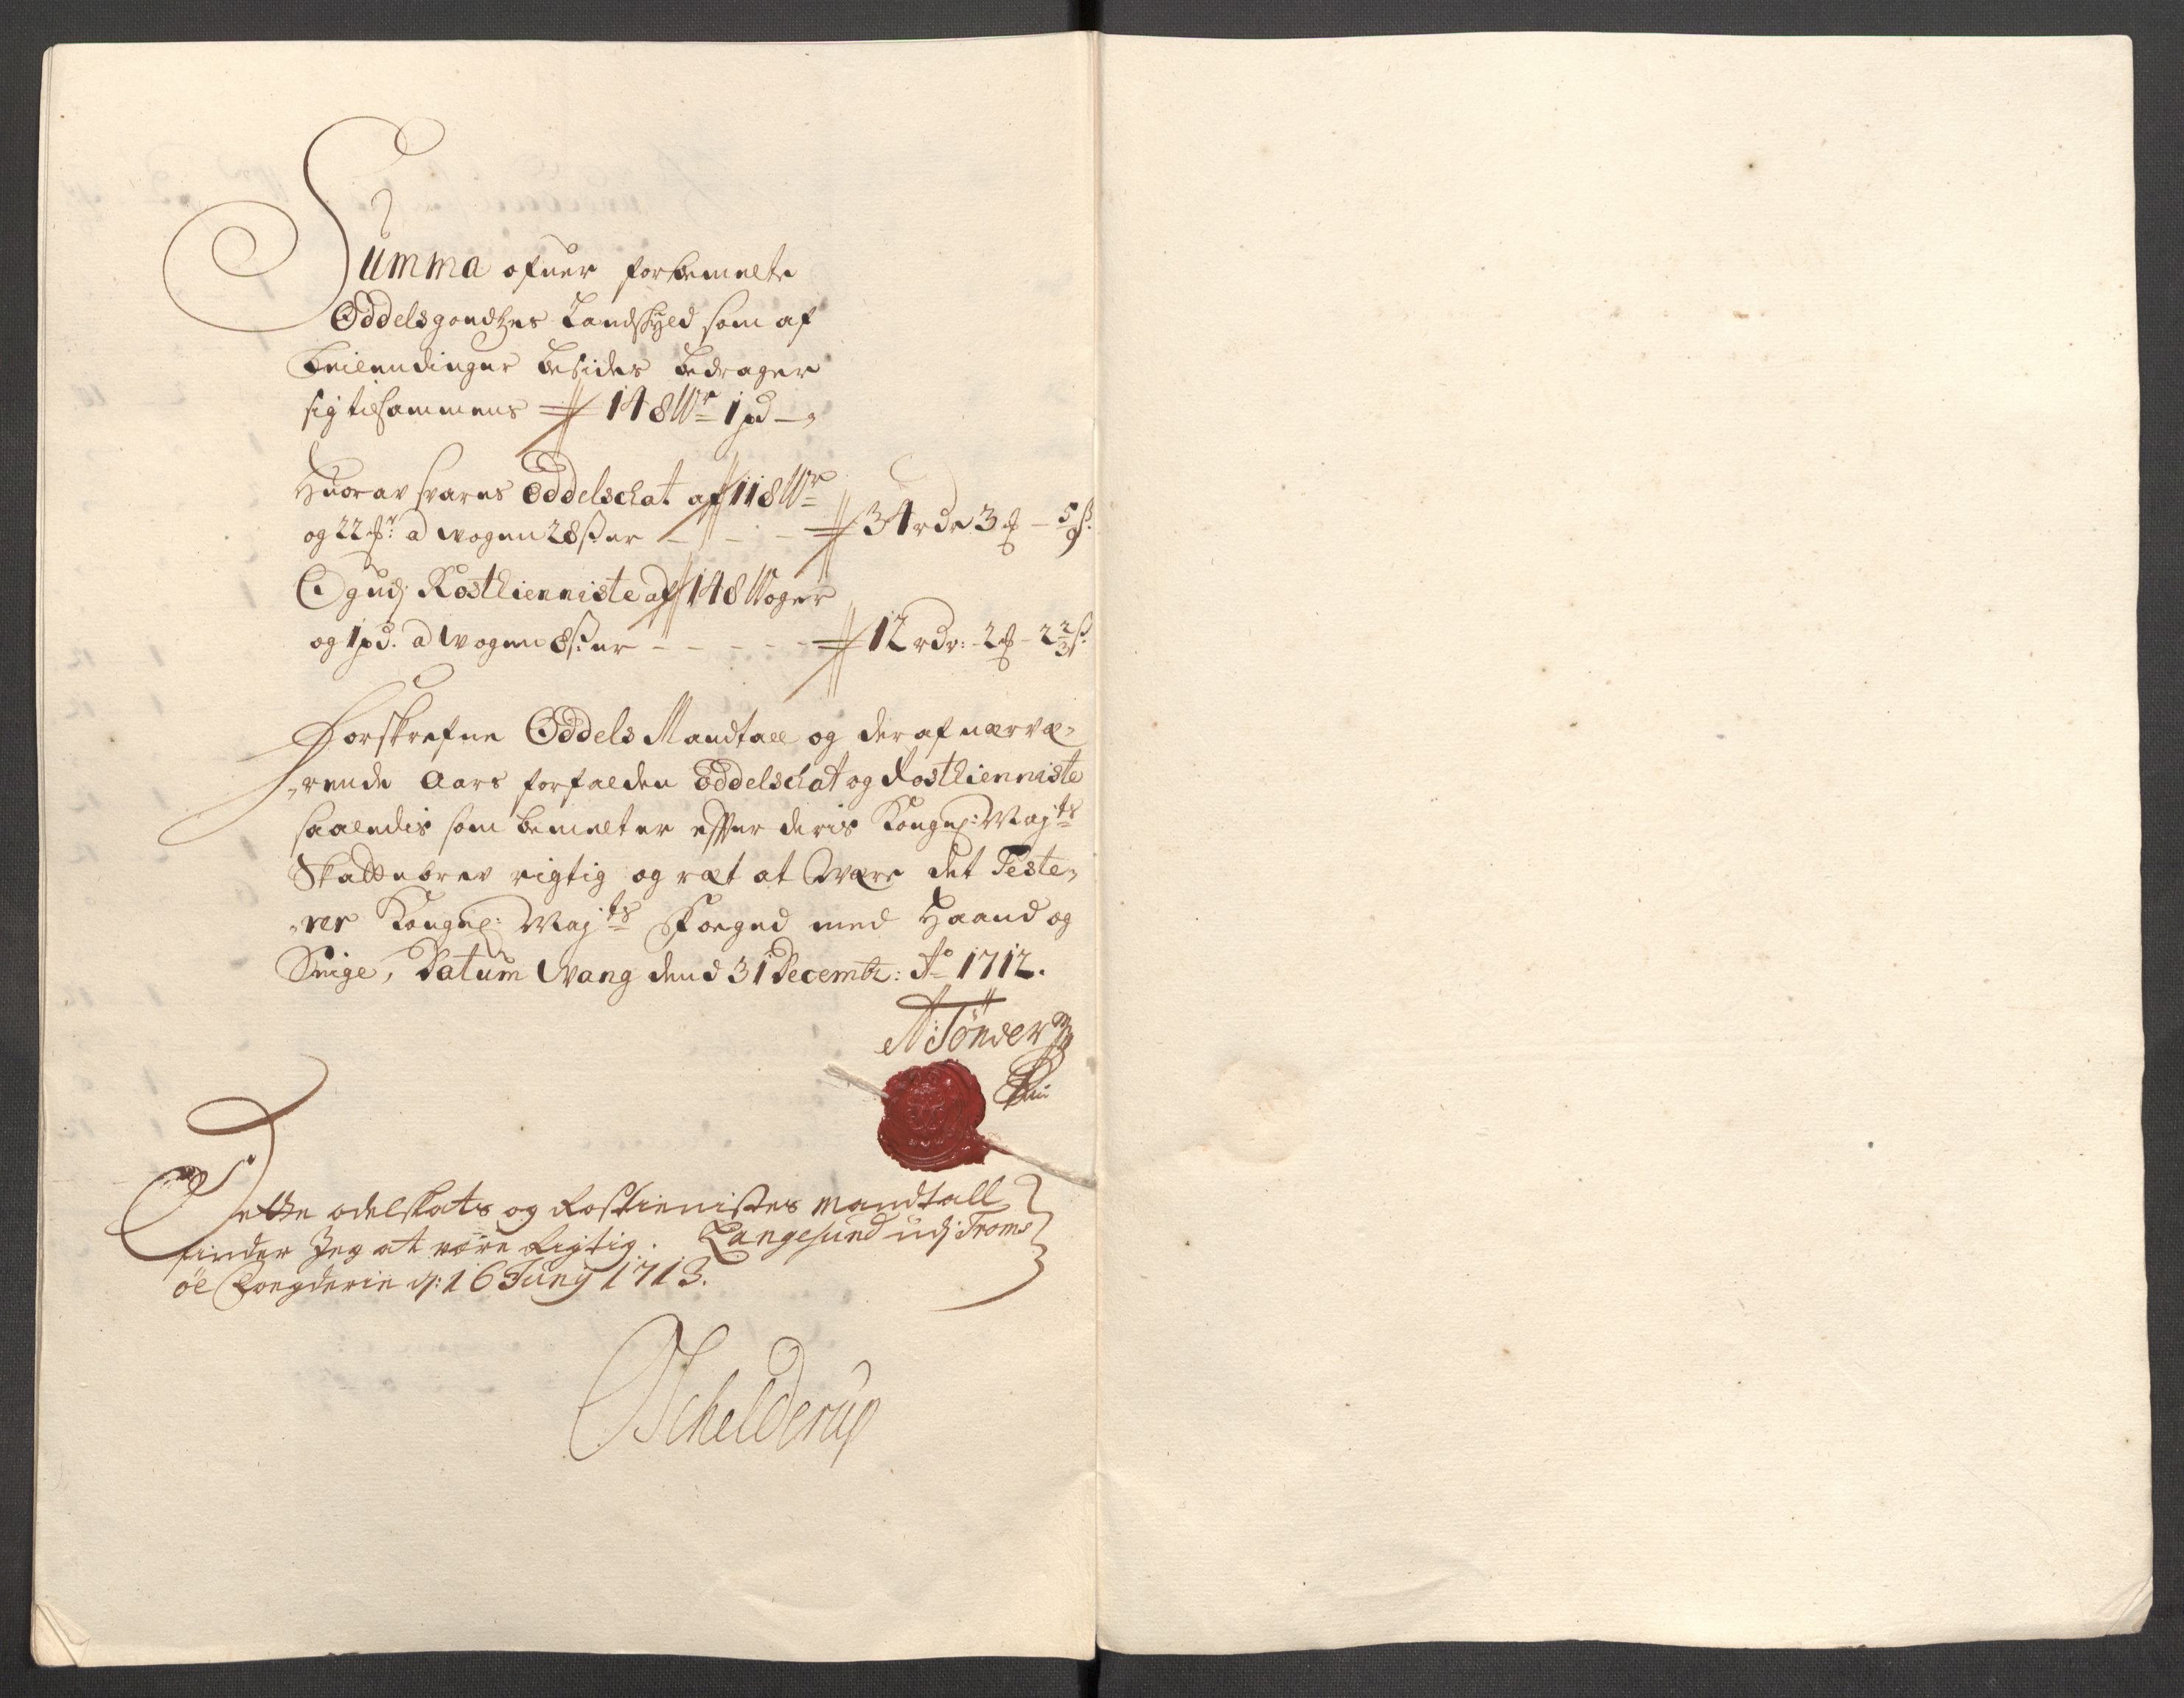 Summa ofuer forbemelte
Oddelsgoudtzes Landskyld som af
beilendinger besides bedrager
sig tilsammens 148 Wr 1 pd –
Huorav svares Oddelschat af 118 Wr
og 22 ... a wogen 28 ß. er – – – 34 rdr 3 ... – 5/9 ß.
Og udj Rosthienniste af 148 Woger
og 1 pd. a Wogen 8 ß. er – – – – – 12 rdr: – 2 ... – 2 2/3 ß.
Forskrefne Oddels Mandtall og der af nærvæ-
-rende Aars forfalden Oddelschat og Rosthienniste
saaledis som bemelt er effter deris Kongel: Majts
Skattebrev rigtig og ræt at Være det Teste-
-rer Kongel: Majts Foeged med Haand og
Seigl, Datum Wang dend 31 Decembr: Ao 1712.
A: Tönder
Dette odelskats og Rostienistes Mandtall
finder Jeg at være Rigtig. Langesund udj Troms
öe Foegderie d: 16 Junij 1713.
Schelderup